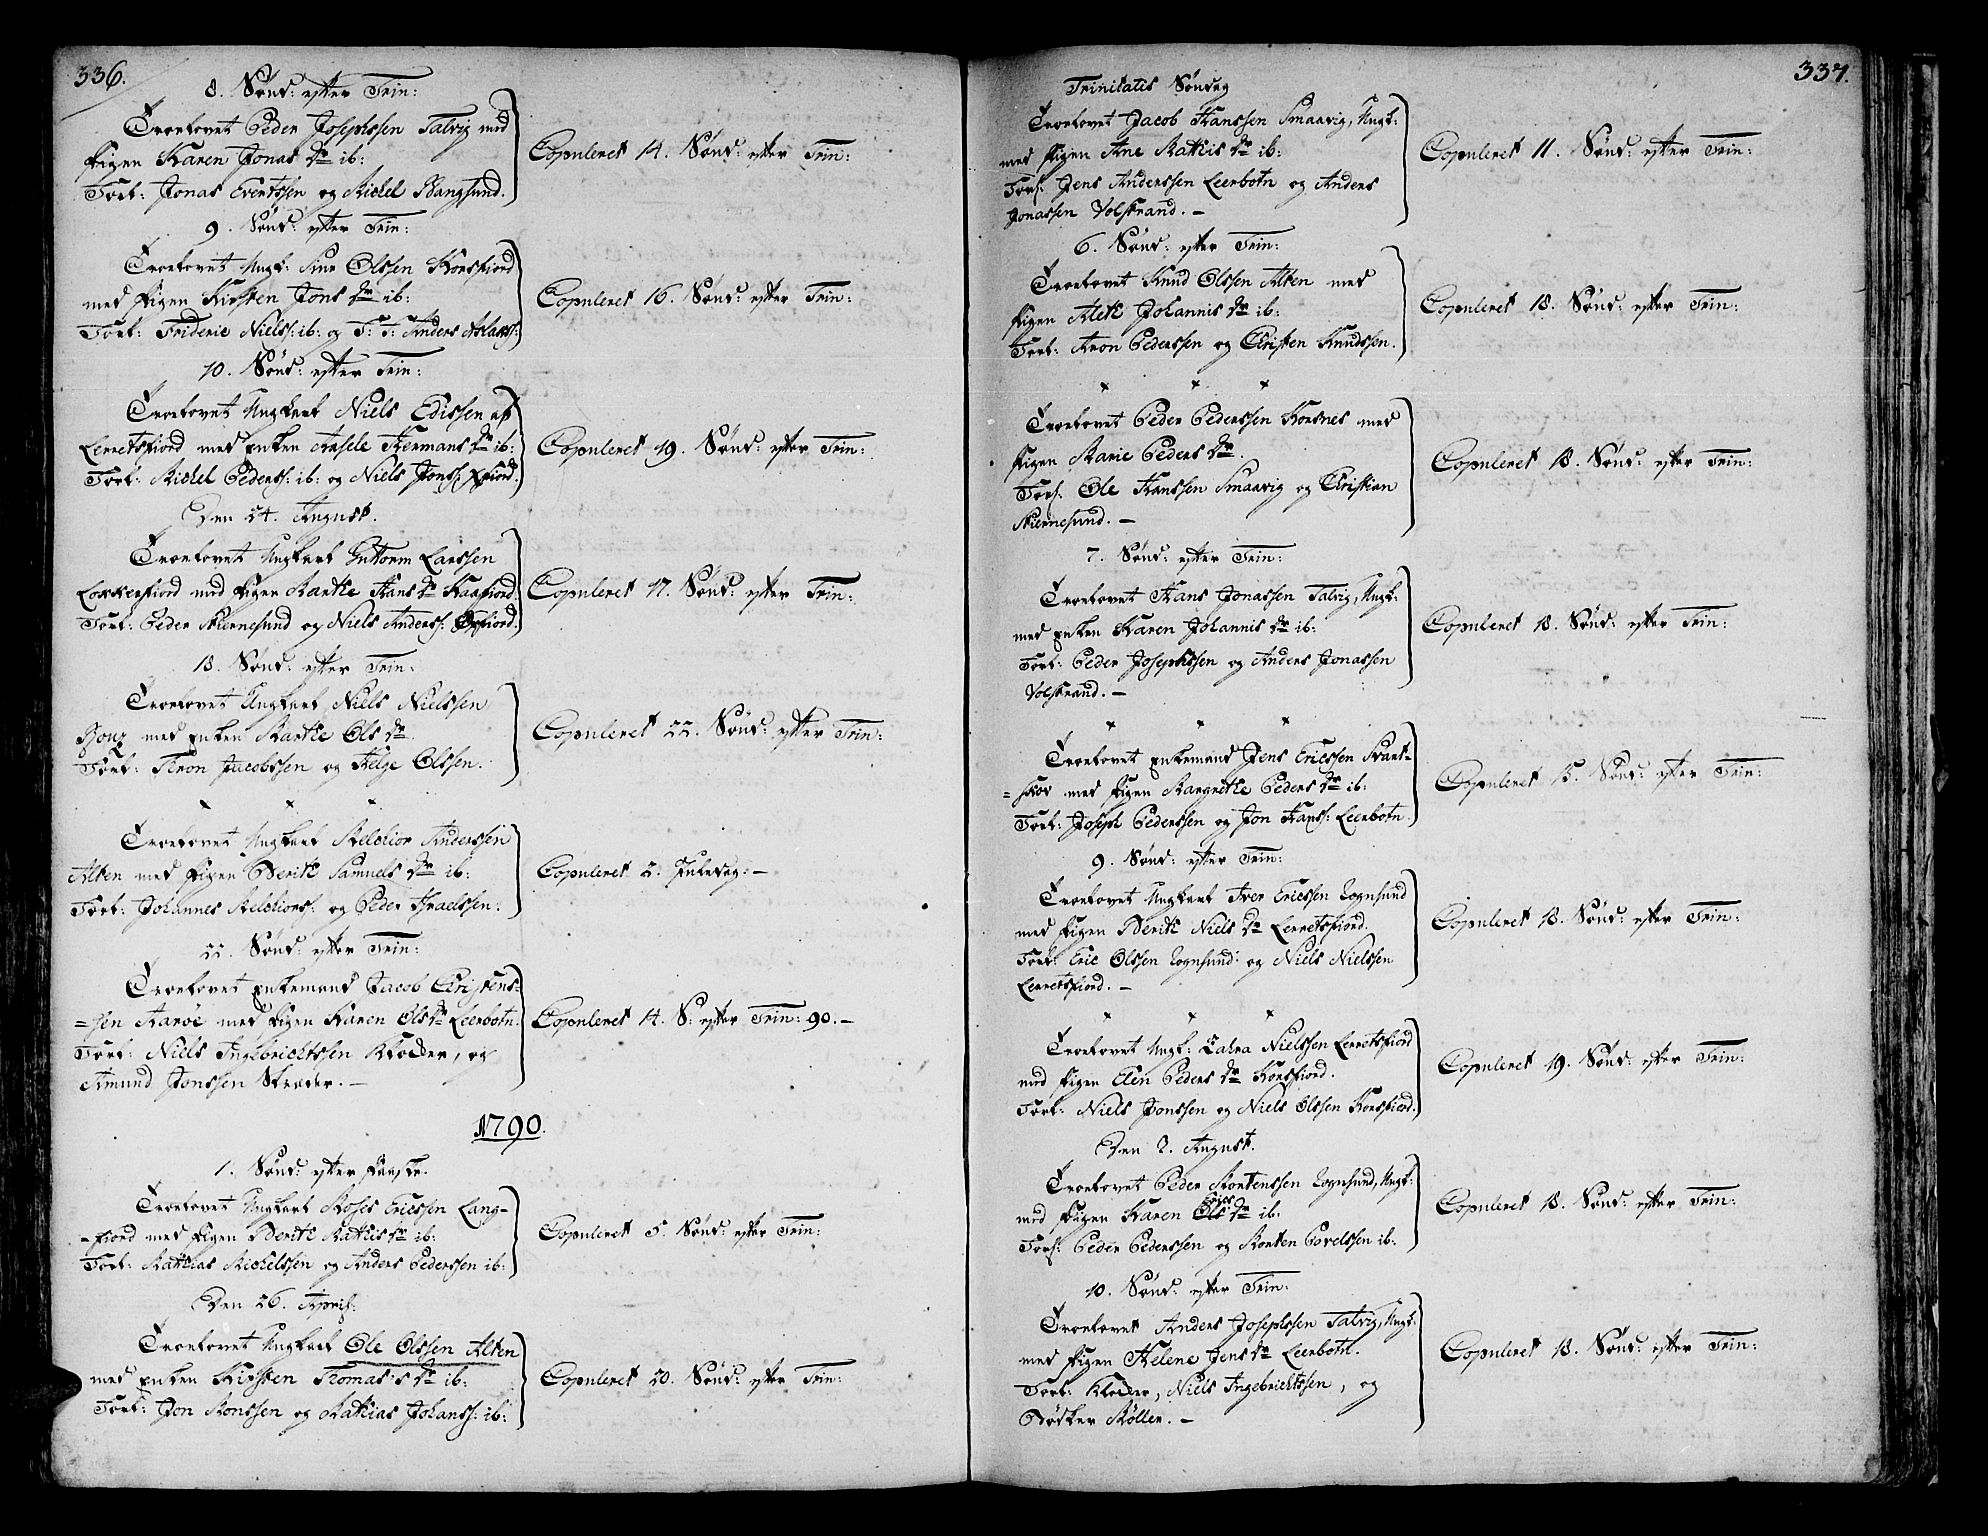 336.
8. Sønd: efter Trin:
Troelovet Peder Josephssen Talvig med
Pigen Karen Jonas Dr ib:
Forl: Jonas Evertssen og Michel Bangsund.
Copuleret 14. Sønd: efter Trin:
9. Sønd: efter Trin:
Troelovet Ungk: Siur Olssen Korsfiord
med Pigen Kirsten Jons Dr ib:
Forl: Frideric Nielss: ib: og T: T: Anders Aslachs:
Copuleret 16. Sønd: efter Trin:
10. Sønd: efter Trin:
Troelovet Ungkarl Niels Edissen af
Lerretsfiord med Enken Ansele Hermans Dr ib:
Forl: Michel Peders: ib: og Niels Jons: Xfiord.
Copuleret 19. Sønd: efter Trin:
Den 24. August.
Troelovet Ungkarl Guttorm Larssen
Lokkerfiord med Pigen Marthe Hans Dr Kaafiord
Forl: Peder Skiernesund og Niels Anderss: Øxfiord.
Copuleret 17. Sønd: efter Trin:
18. Sønd: efter Trin:
Troelovet Ungkarl Niels Nielssen
med Enken Marthe Ols Dr
Forl: Aron Jacobssen og Helge Olssen.
Copuleret 22. Sønd: efter Trin:
Troelovet Ungkarl Melchior Anderssen
Alten med Pigen Berith Samuels Dr ib:
Forl: Johannes Melchiors: og Peder Israelssen.
Copuleret 2. Juledag: -
22. Sønd: efter Trin:
Troelovet Enkemand Jacob Christens-
=sen Aarøe med Pigen Karen Ols Dr Leerbotn.
Forl: Niels Ingebrichtssen Klocker, og
Amund Jonssen Skræder. -
Copuleret 14. S: efter Trin: 90. -
1790.
1. Sønd: efter Paaske.
Troelovet Ungkarl Moses Ericssen Lang-
=fiord med Pigen Berith Mathis Dr ib:
Forl: Mathias Michelssen og Anders Pederssen ib:
Copuleret 5. Sønd: efter Trin:
Den 26. April.
Troelovet Ungkarl Ole Olssen Alten
med Enken Kirsten Thomas's Dr ib:
Forl: Jon Monssen og Mathias Johanss: ib:
Copuleret 20. Sønd: efter Trin:
337.
Trinitatis Søndag
Troelovet Jacob Hanssen Smaavig, Ungk:
med Pigen Ane Mathis Dr ib:
Forl: Jens Anderssen Leerbotn og Anders
Jonassen Volstrand. -
Copuleret 11. Sønd: efter Trin:
6. Sønd: efter Trin:
Troelovet Knud Olssen Alten med
Pigen Aleth Johannis Dr ib:
Forl: Aron Pederssen og Christen Knudssen.
Copuleret 18. Sønd: efter Trin:
Troelovet Peder Pederssen Korsnes med
Pigen Marie Peders Dr.
Forl: Ole Hanssen Smaavig og Christian
Skiernesund. -
Copuleret 18. Sønd: efter Trin:
7. Sønd: efter Trin:
Troelovet Hans Jonassen Talvig, Ungk:
med Enken Karen Johannis Dr ib:
Forl: Peder Josephssen og Anders Jonassen
Volstrand. -
Copuleret 18. Sønd: efter Trin:
Troelovet Enkemand Jens Ericssen Svart-
=skov med Pigen Margrethe Peders Dr ib:
Forl: Joseph Pederssen og Jon Hanss: Leerbotn.
Copuleret 15. Sønd: efter Trin:
9. Sønd: efter Trin:
Troelovet Ungkarl Iver Ericssen Lognsund
med Pigen Berith Niels Dr Lerretsfiord.
Forl: Eric Olssen Lognsund: og Niels Nielssen
Lerretsfiord. -
Copuleret 18. Sønd: efter Trin:
Troelovet Ungk: Nielssen Lerretsfiord
med Pigen Elen Peders Dr Korsfiord.
Forl: Niels Jonssen og Niels Olssen Korsfiord.
Copuleret 19. Sønd: efter Trin:
Den 2. August.
Troelovet Peder Mortenssen Lognsund, Ungk:
med Pigen Karen Erics Ols Dr ib:
Forl: Peder Pederssen og Morten Povelssen ib:
Copuleret 18. Sønd: efter Trin:
10. Sønd: efter Trin:
Troelovet Anders Josephssen Talvig, Ungk:
med Pigen Helene Jens Dr Leerbotn.
Forl: Klocker, Niels Ingebrichtssen, og
Bødker Møller. -
Copuleret 18. Sønd: efter Trin: